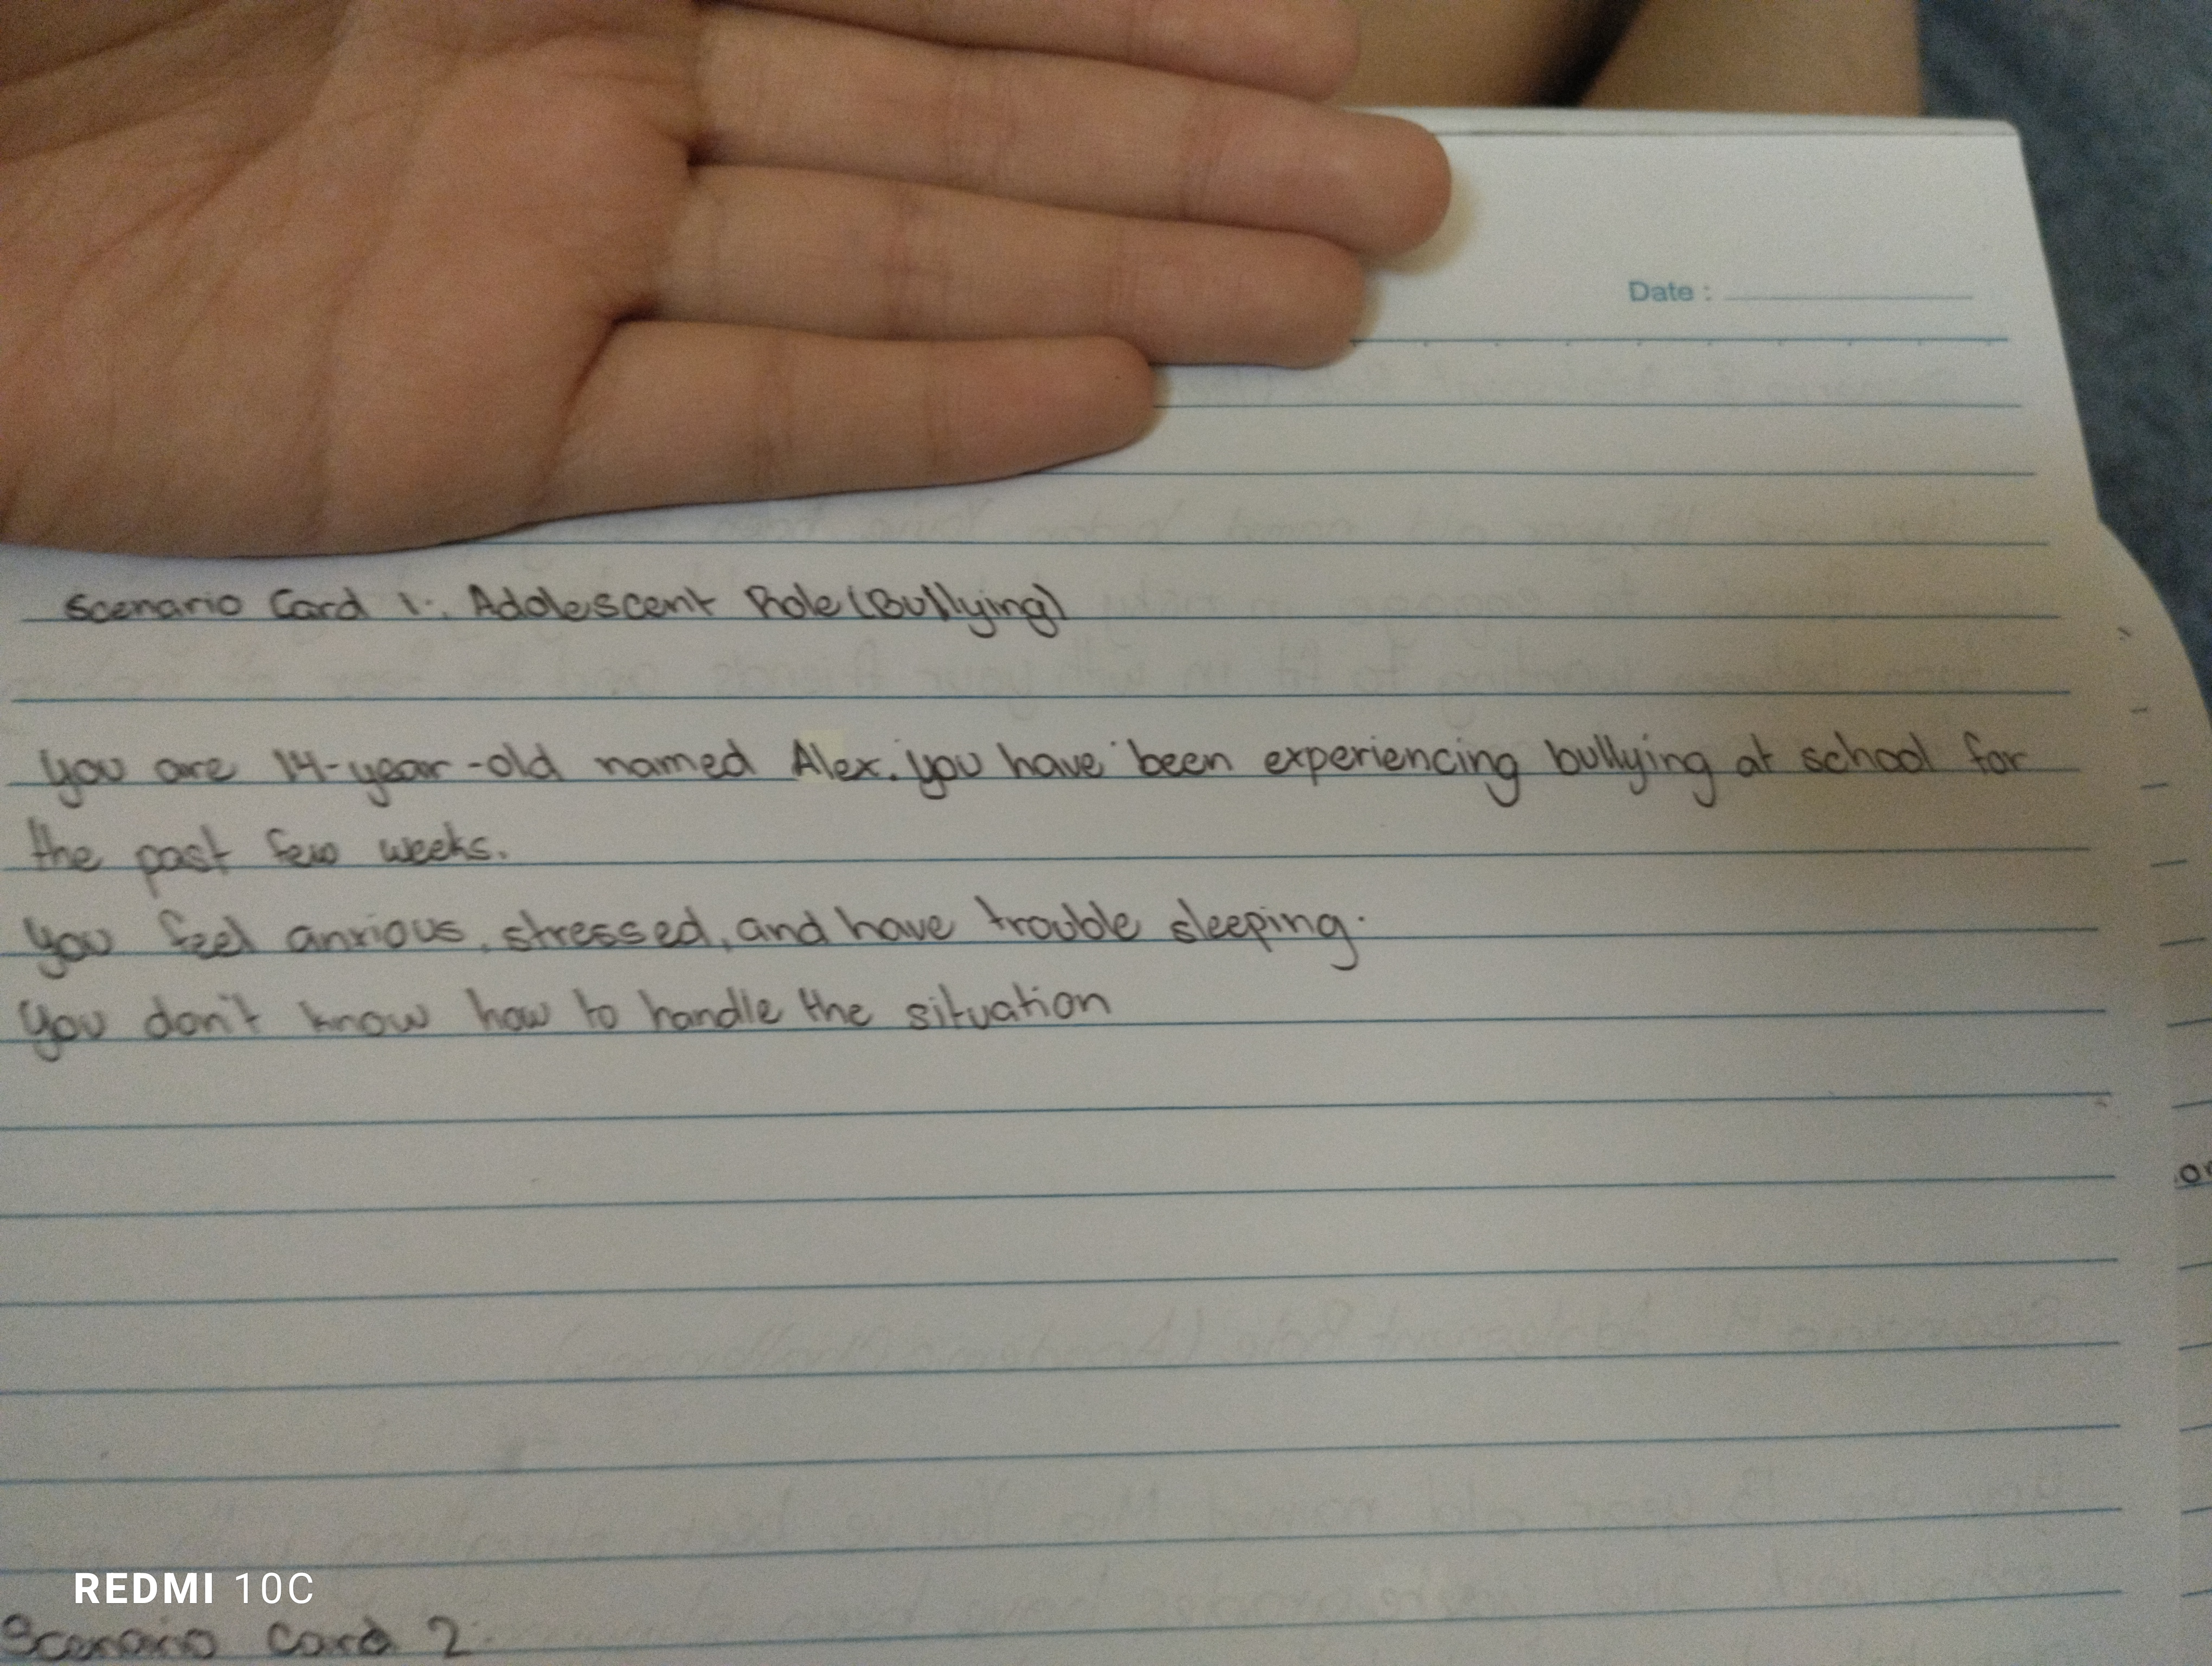 Date :
Scenario Card 1: Adolescent Role (Bullying)
you are 14-year-old named Alex. you have been experiencing bullying at school for
the past few weeks.
you feel anxious, stressed, and have trouble sleeping.
you don't know how to handle the situation
or
REDMI 10C
Scenario Card 2: